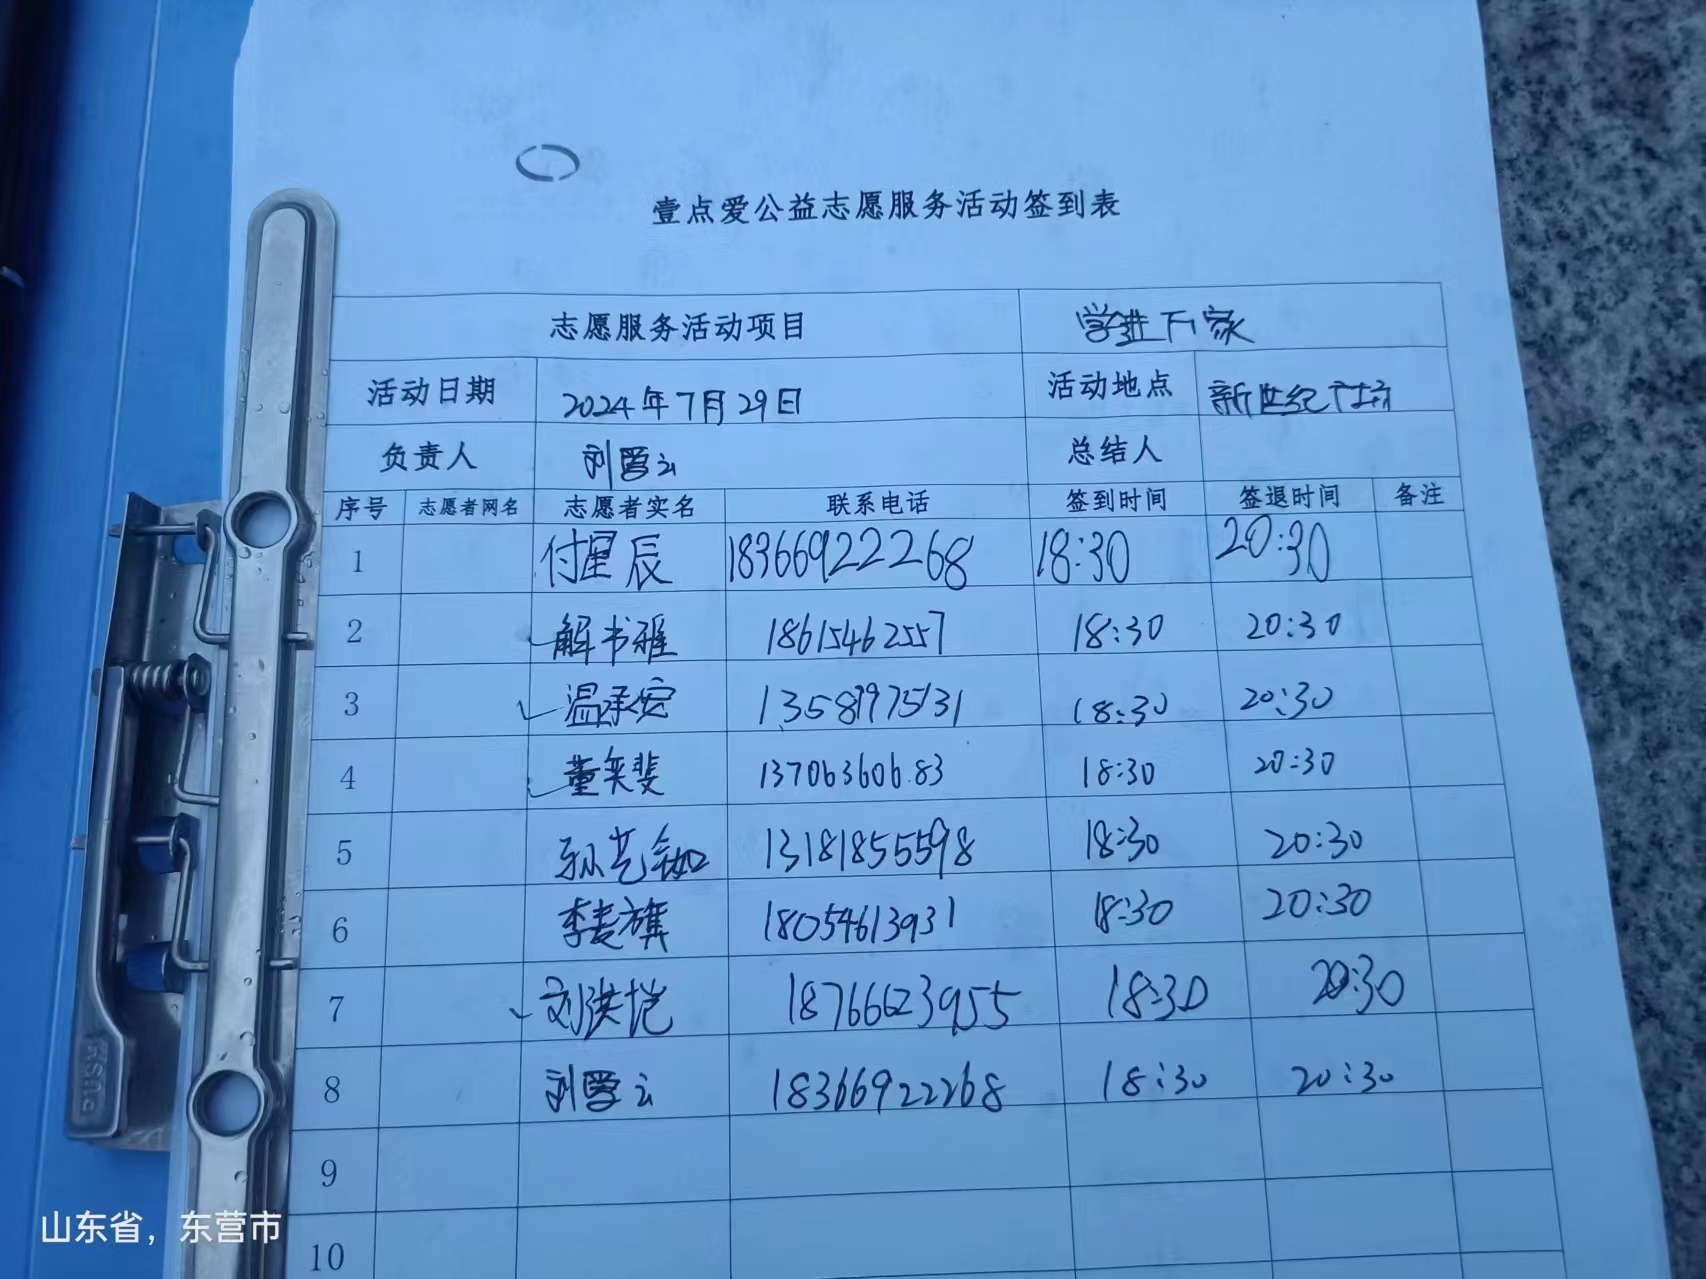 壹点爱公益志愿服务活动签到表
志愿服务活动项目 学进万家
活动日期 2024年7月29日 活动地点 新世纪广场
负责人 刘学云 总结人
序号 志愿者网名 志愿者实名 联系电话 签到时间 签退时间 备注
1 付星辰 18366922268 18:30 20:30
2 解书雅 18615462557 18:30 20:30
3 温承宽 13581975131 18:30 20:30
4 董奕斐 13706360683 18:30 20:30
5 孙艺铷 13181855598 18:30 20:30
6 李麦旗 18054613931 18:30 20:30
7 刘洪恺 18766623955 18:30 20:30
8 刘学云 18366922268 18:30 20:30
9
10
PUSK
山东省，东营市